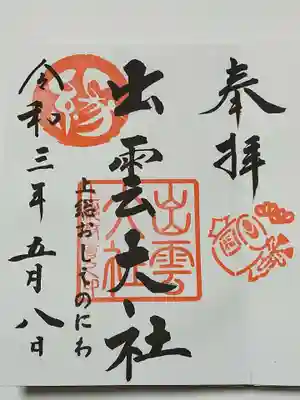 奉拝
出雲大社
出雲大社
上総おしえのにわ
縁
令和三年五月八日